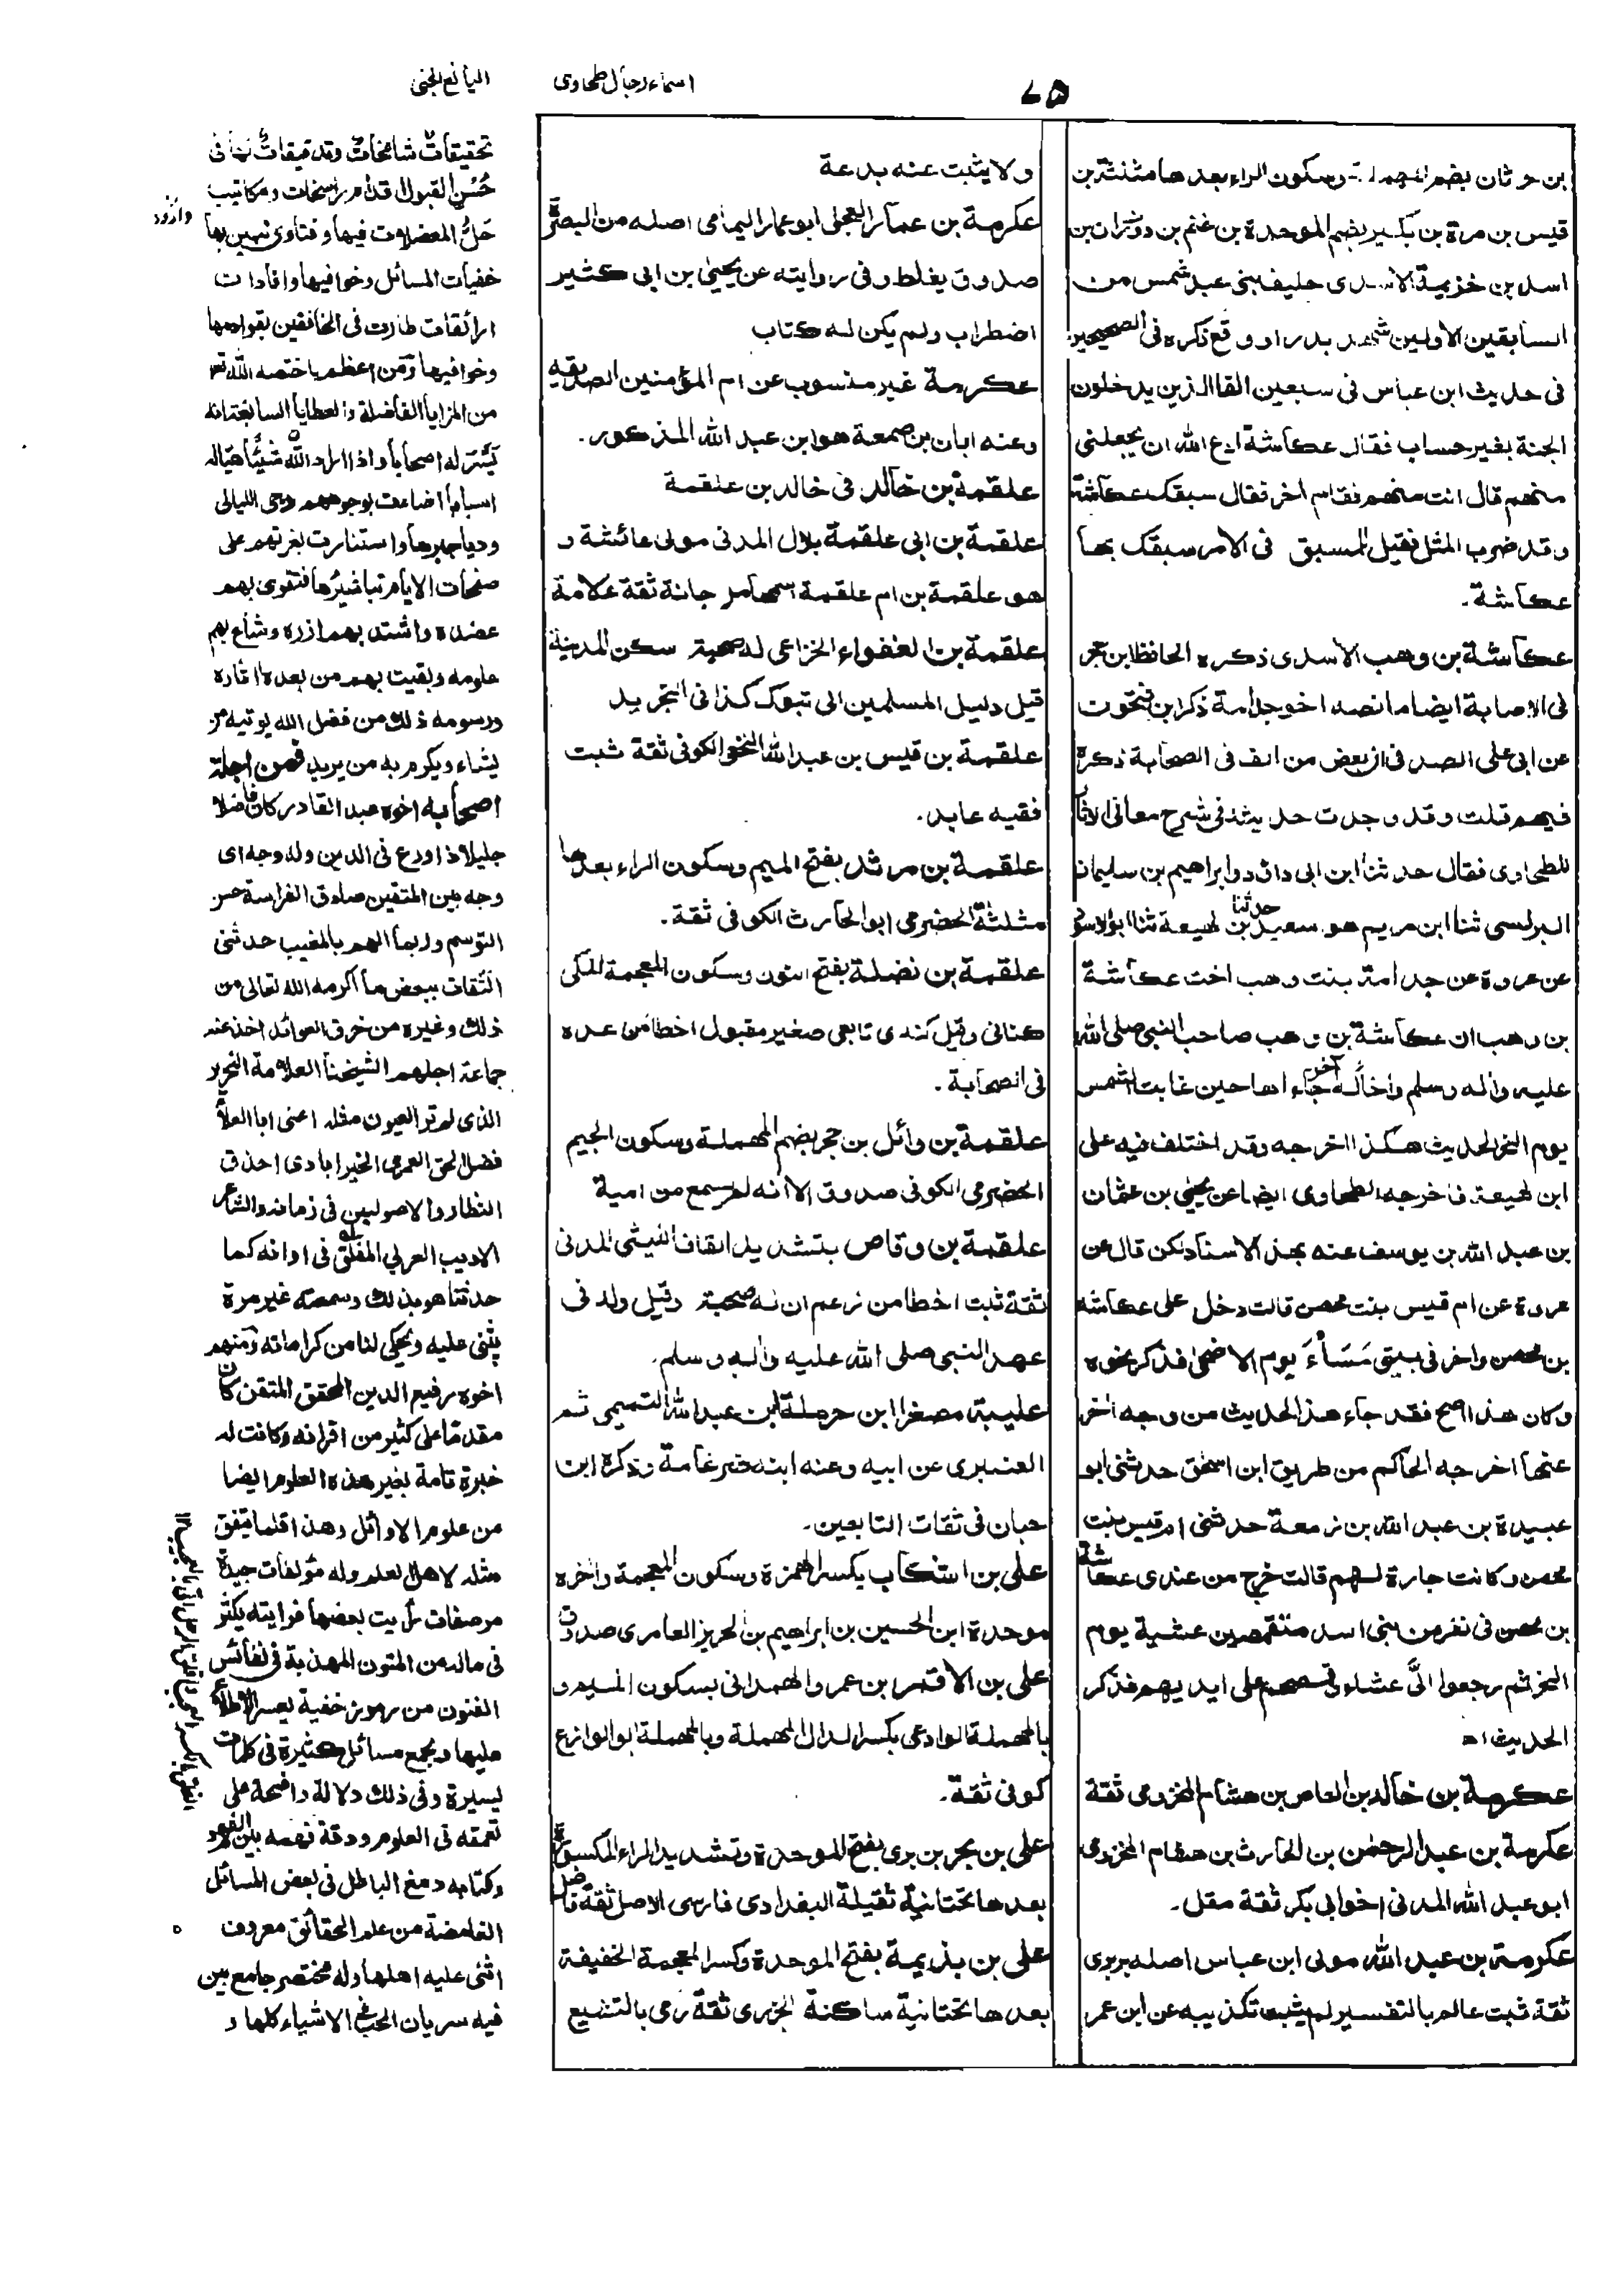 ٧٥
اسماء رجال طحاوی
اليانع الجنی
بن حرثان بضم المهملة وسكون الراء بعدها مثلثة بن
قيس بن مرة بن بكير بضم الموحدة بن غنم بن دودان بن
اسد بن خزيمة الاسدى حليف بنى عبد شمس من
السابقين الاولين شهد بدرا ووقع ذكره فى الصحيحين
فى حديث ابن عباس فى سبعين الفا الذين يدخلون
الجنة بغير حساب فقال عكاشة ادع الله ان يجعلنى
منهم قال انت منهم فقام اخر فقال سبقك عكاشة
وقد ضرب المثل فقيل للمسبق فى الامر سبقك بها
عكاشة.
عكاشة بن وهب الاسدى ذكره الحافظ ابن حجر
فى الاصابة ايضا ما نصه اخو جدامة ذكر ابن فتحون
عن ابى على الصدفى ان بعض من الف فى الصحابة ذكره
فيهم قلت وقد وجدت حديثه فى شرح معانى الاثار
للطحاوى فقال حدثنا ابن ابى داؤد وابراهيم بن سليمان
البرلسى ثنا ابن مريم هو سعيد حدثنا بن لهيعة ثنا ابوالاسود
عن عروة عن جدامة بنت وهب اخت عكاشة
بن وهب ان عكاشة بن وهب صاحب النبى صلى الله
عليه واله وسلم واخاله آخر جاء اها حين غابت الشمس
يوم النحر الحديث هكذا اخرجه وقد اختلف فيه على
ابن لهيعة فاخرجه الطحاوى ايضا عن يحيى بن عثمان
بن عبد الله بن يوسف عنه بهذ الاسناد لكن قال عن
عروة عن ام قيس بنت محصن قالت دخل على عكاشه
بن محصن واخر فى بيتى مَسَاءً يوم الاضحى فذكر نحوه
وكان هذا اصح فقد جاء هذا الحديث من وجه اخر
عنها اخرجه الحاكم من طريق ابن اسحق حدثنى ابو
عبيدة بن عبد الله بن زمعة حدثنى ام قيس بنت
محصن وكانت جارة لهم قالت خرج من عندى عكاشة
بن محصن فى نفر من بنى اسد متقمصين عشية يوم
النحر ثم رجعوا الىَّ عشاء وقمصهم على ايديهم فذكر
الحديث اه
عكرمة بن خالد بن العاص بن هشام المخزومى ثقة
عكرمة بن عبد الرحمن بن الحارث بن هشام المخزومى
ابو عبد الله المدنى اخو ابى بكر ثقة مقل.
عكرمة بن عبد الله مولى ابن عباس اصله بربرى
ثقة ثبت عالم بالتفسير لم يثبت تكذيبه عن ابن عمر
ولا يثبت عنه بدعة
عكرمة بن عمار العجلى ابو عمار اليمامى اصله من البصرة
صدوق يغلط وفى روايته عن يحيى بن ابى كثير
اضطراب ولم يكن له كتاب
عكرمة غير منسوب عن ام المؤمنين الصديقه
وعنه ابان بن صمعة هو ابن عبد الله المذكور.
علقمة بن خالد فى خالد بن علقمة
علقمة بن ابى علقمة بلال المدنى مولى عائشة و
هو علقمة بن ام علقمة اسمها مرجانة ثقة علامة
علقمة بن الغفواء الخزاعى له صحبة سكن المدينة
قيل دليل المسلمين الى تبوك كذا فى التجريد
علقمة بن قيس بن عبد الله النخعى الكوفى ثقة ثبت
فقيه عابد.
علقمة بن مرثد بفتح الميم وسكون الراء بعدها
مثلثة الحضرمى ابو الحارث الكوفى ثقة.
علقمة بن نضلة بفتح النون وسكون المعجمة المكى
كنانى وقيل كندى تابعى صغير مقبول اخطأ من عده
فى الصحابة.
علقمة بن وائل بن حجر بضم المهملة وسكون الجيم
الحضرمى الكوفى صدوق الا انه لم يسمع من ابيه
علقمة بن وقاص بتشديد القاف الليثى المدنى
ثقة ثبت اخطا من زعم ان له صحبة وقيل ولد فى
عهد النبى صلى الله عليه واله وسلم.
عليبة مصغرا ابن حرملة بن عبد الله التميمى ثم
العنبرى عن ابيه وعنه ابنه ضرغامة وذكره ابن
حبان فى ثقات التابعين.
على بن اشكاب بكسر الهمزة وسكون المعجمة واخره
موحدة ابن الحسين بن ابراهيم بن الحريز العامرى صدوق
على بن الاقمر بن عمرو الهمدانى بسكون الميم و
بالمهملة الوادعى بكسر الدال المهملة وبالمهملة ابو الوازع
كوفى ثقة.
على بن بحر بن برى بفتح الموحدة وتشديد الراء المكسورة
بعدها تحتانية ثقيلة البغدادى فارسى الاصل ثقة فاضل
على بن بذيمة بفتح الموحدة وكسر المعجمة الخفيفة
بعدها تحتانية ساكنة الجزرى ثقة رمى بالتشيع
تحقيقات شامخات وتدقيقات لها فى
حُسن القبول اقدام راسخات ومكاتيب
حَلُّ المعضلات فيها وفتاوى تهين بها
خفيات المسائل وخوافيها وافادات
رائقات طارت فى الخافقين بقوادمها
وخوافيها ومن اعظم ما ختصه الله تعـ
من المزايا الفاضلة والعطايا السابغة انه
يَسّر له اصحابا واذا اراد الله شيئًا هيّأ له
اسبابا اضاءت بوجوههم دجى الليالى
ودياجيرها واستنارت بغرتهم على
صفحات الايام تباشيرُها فتقوى بهم
عضده واشتد بهم ازره وشاع بهم
علومه وبقيت بهم من بعده اثاره
ورسومه ذلك من فضل الله يوتيه من
يشاء ويكرم به من يريد فمن اجلة
اصحابه اخوه عبد القادر كان فاضلا
جليلا ذا ورع فى الدين وله وجه اى
وجه بين المتقين صادق الفراسة حسن
التوسم وربما الهم بالمغيب حدثنى
الثقات ببعض ما اكرمه الله تعالى من
ذلك وغيره من خرق العوائد اخذ عنه
جماعة اجلهم الشيخنا العلامة النحرير
الذى لم تر العيون مثله اعنى ابا العلاء
فضل الحق العمرى الخيرابادى احذق
النظار والاصوليين فى زمانه والشاعر
الاديب العربي المفلق فى اوانه كما
حدثنا هو بذلك وسمعته غير مرة
يثنى عليه ويحكى لنا من كراماته ومنهم
اخوه رفيع الدين المحقق المتقن كان
مقدما على كثير من اقرانه وكانت له
خبرة تامة بغير هذه العلوم ايضا
من علوم الاوائل وهذا قلما يتفق
مثله لاهل العلم وله مؤلفات جيدة
مرصفات رأيت بعضها فرايته يكثر
فى ماله من المتون المهذبة فى نفائس
الفنون من رموز خفية يعسر الاطلاع
عليها ويجمع مسائل كثيرة فى كلمات
يسيرة وفى ذلك دلالة واضحة على
تعمقه فى العلوم ودقة فهمه بين الفهوم
وكتابه دمغ الباطل فى بعض المسائل
الغامضة من علم الحقائق معروف
اثنى عليه اهلها وله مختصر جامع بين
فيه سريان الحب فى الاشياء كلها و